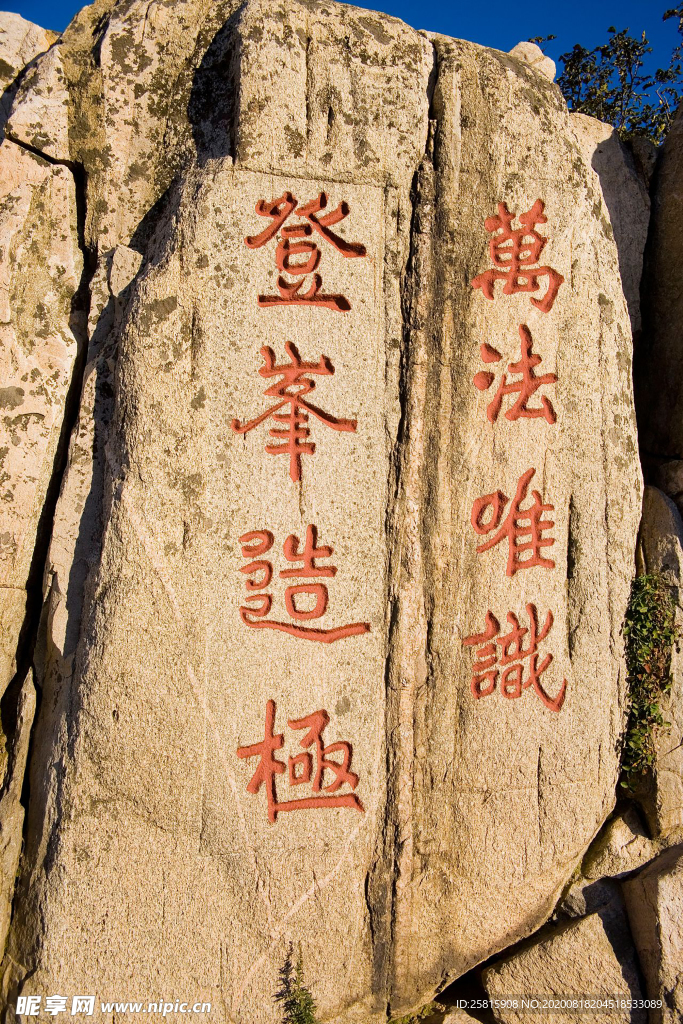 萬法唯識
登峯造極
昵享网 www.nipic.cn
ID:25815908 NO:20200818204518533089